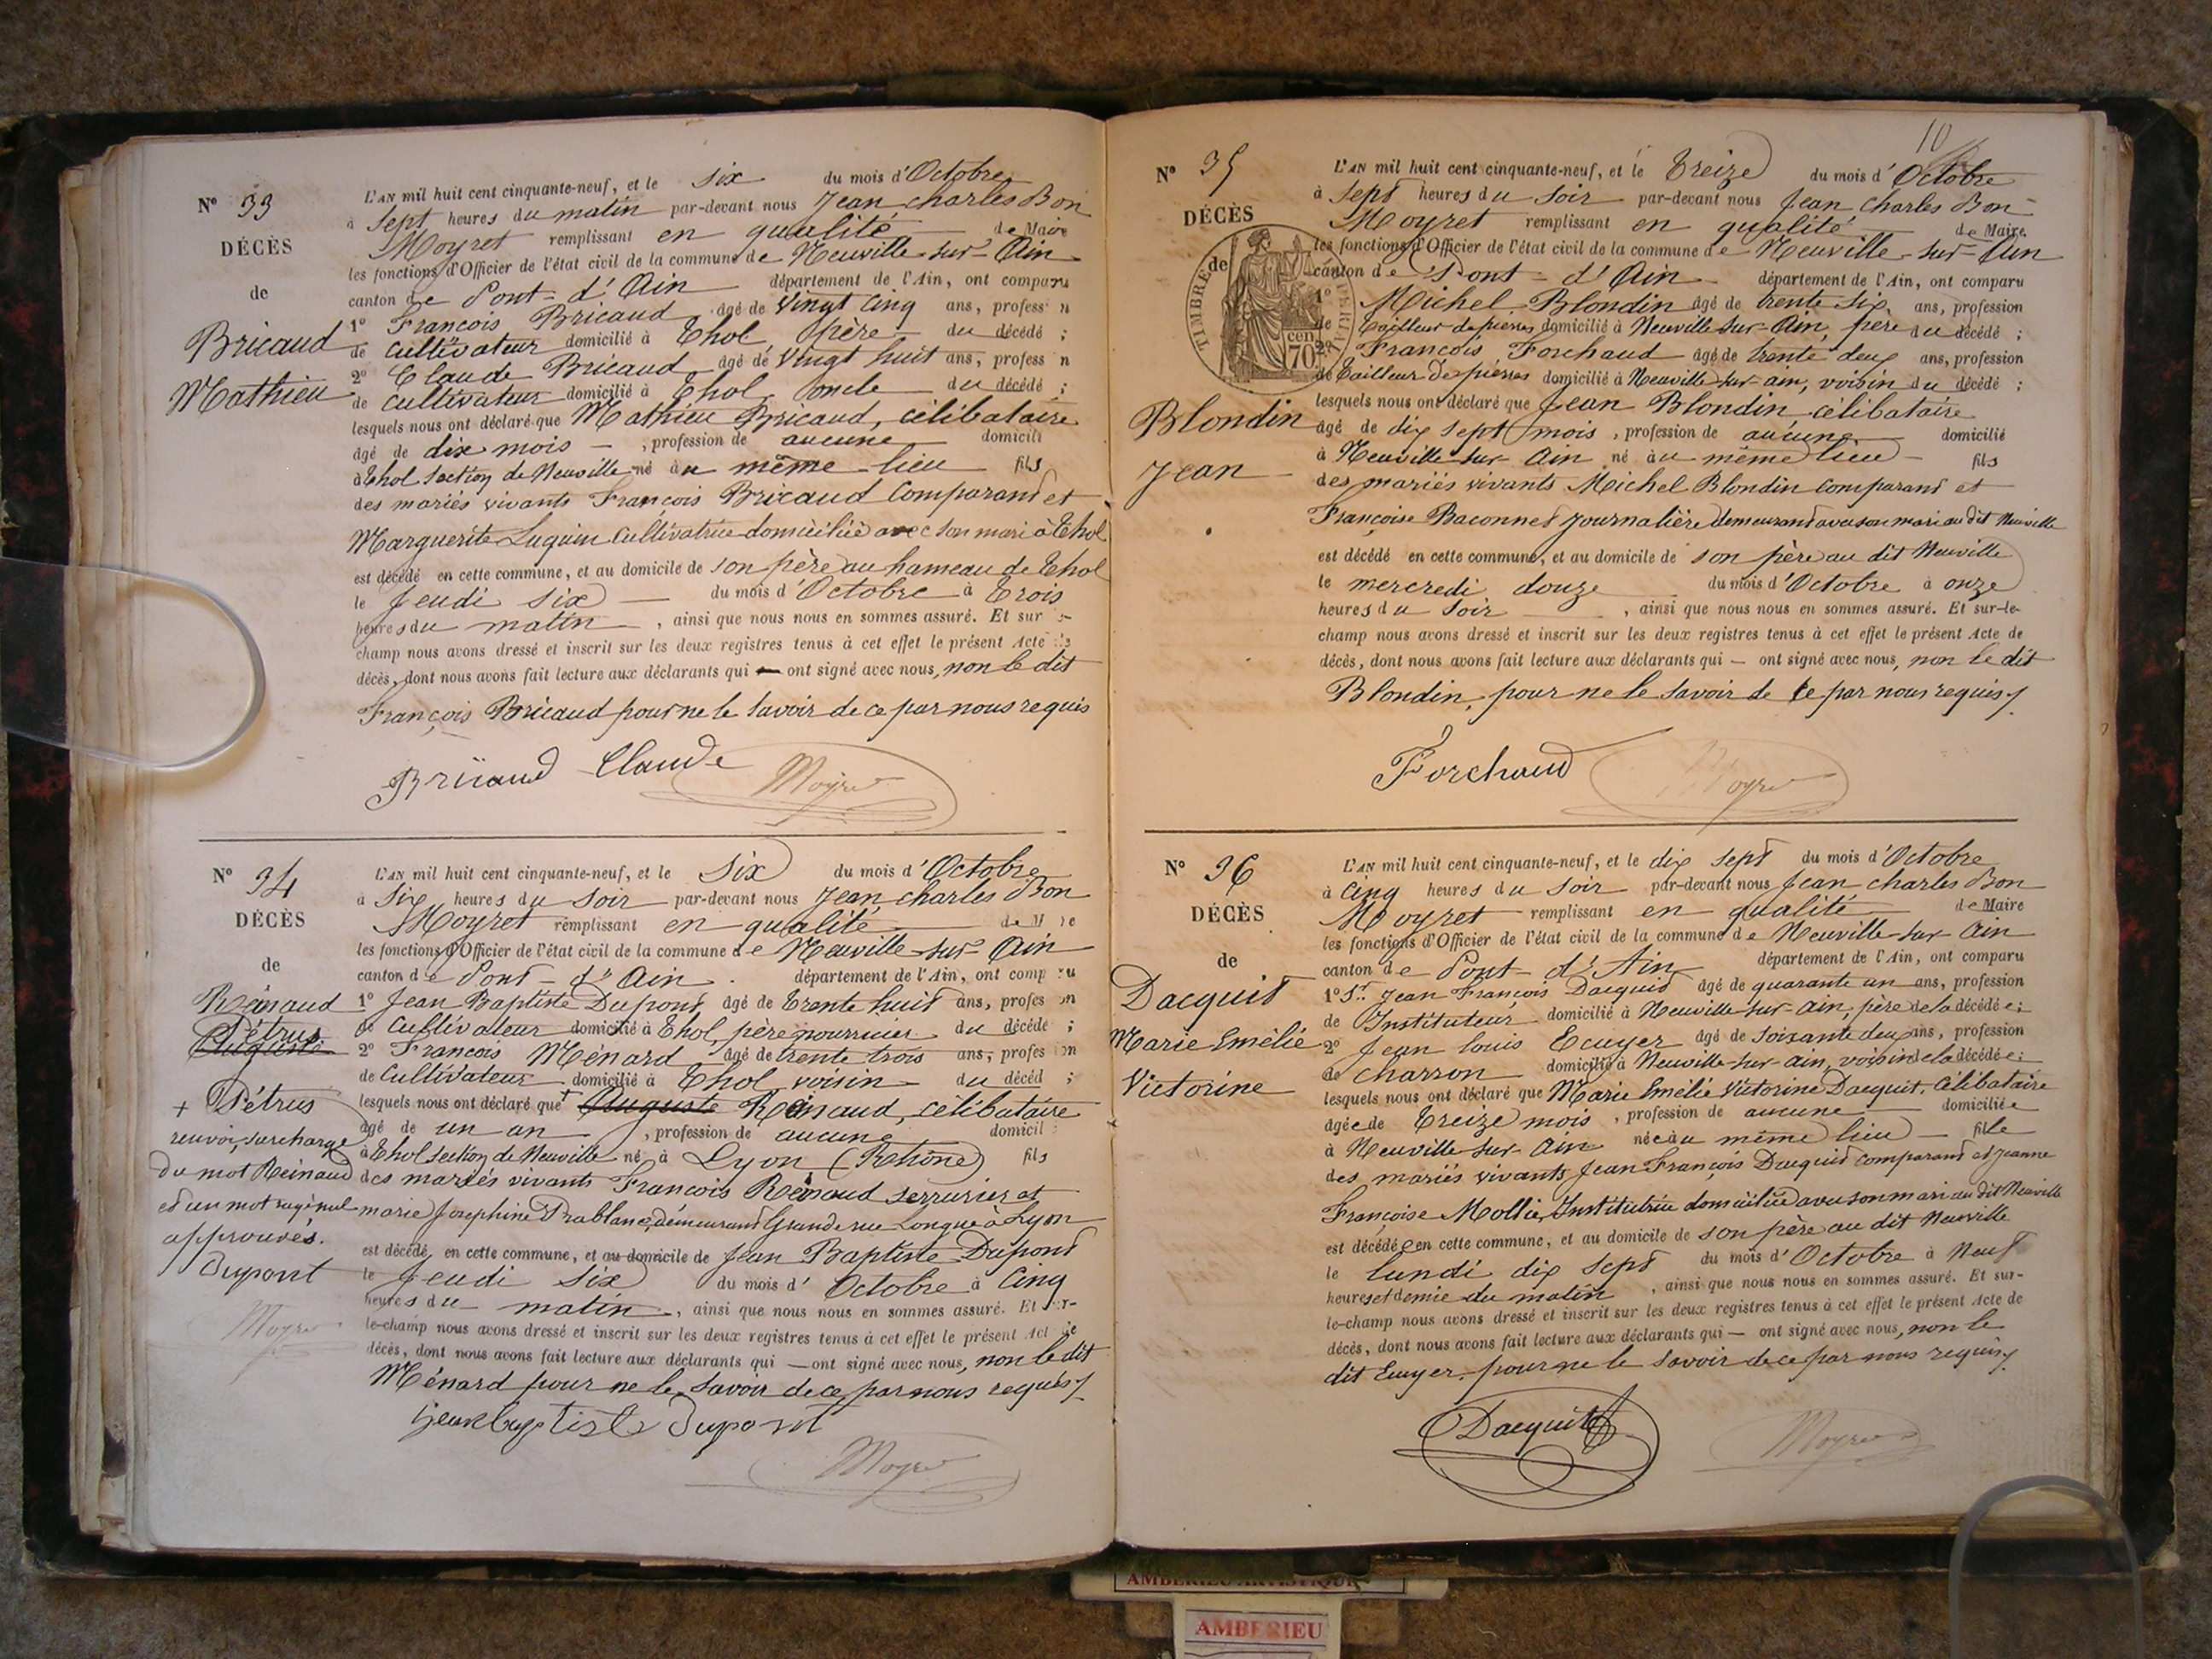 Nº 33
DÉCÈS
de
Bricaud
Mathieu
L'AN mil huit cent cinquante-neuf, et le six du mois d'Octobre
à sept heures du matin par-devant nous Jean charles Bon
Moyret remplissant en qualité de Maire
les fonctions d'Officier de l'état civil de la commune de Neuville-sur-Ain
canton de Pont-d'Ain département de l'Ain, ont comparu
1º François Bricaud âgé de vingt cinq ans, profess n
de cultivateur domicilié à Thol père du décédé ;
2º Claude Bricaud âgé de vingt huit ans, profess n
de cultivateur domicilié à Thol oncle du décédé ;
lesquels nous ont déclaré que Mathieu Bricaud, célibataire
âgé de dix mois — , profession de aucune domicili
à Thol section de Neuville né au même lieu fils
des mariés vivants François Bricaud comparant et
Marguerite Luguin cultivatrice domiciliée avec son mari à Thol
est décédé en cette commune, et au domicile de son père au hameau de Thol
le Jeudi six — du mois d'Octobre à trois
heures du matin , ainsi que nous nous en sommes assuré. Et sur le-
champ nous avons dressé et inscrit sur les deux registres tenus à cet effet le présent Acte de
décès, dont nous avons fait lecture aux déclarants qui — ont signé avec nous, non le dit
François Bricaud pour ne le savoir de ce par nous requis
Bricaud Claude Moyret
Nº 34
DÉCÈS
de
Reinaud
Pétrus
Auguste
+ Pétrus
renvoi, surcharge
du mot Reinaud
et un mot rayé nul
approuvés.
Dupont
Moyret
L'AN mil huit cent cinquante-neuf, et le Six du mois d'Octobre
à Six heures du soir par-devant nous Jean charles Bon
Moyret remplissant en qualité de M re
les fonctions d'Officier de l'état civil de la commune de Neuville-sur-Ain
canton de Pont-d'Ain . département de l'Ain, ont comp ru
1º Jean Baptiste Dupont âgé de trente huit ans, profes on
de Cultivateur domicilié à Thol, père nourricier du décédé ;
2º François Ménard âgé de trente trois ans, profes on
de Cultivateur domicilié à Thol voisin du décéd ;
lesquels nous ont déclaré que + Auguste Reinaud, célibataire
âgé de un an , profession de aucune domicil
à Thol section de Neuville né à Lyon (Rhône) fils
des mariés vivants François Reinaud serrurier et
marie Josephine Prablanc, demeurant Grande rue Longue à Lyon
est décédé en cette commune, et au domicile de Jean Baptiste Dupont
le Jeudi six du mois d'Octobre à Cinq
heures du matin , ainsi que nous nous en sommes assuré. Et sur-
le-champ nous avons dressé et inscrit sur les deux registres tenus à cet effet le présent Act de
décès, dont nous avons fait lecture aux déclarants qui — ont signé avec nous, non le dit
Ménard pour ne le savoir de ce par nous requis
jean baptiste Dupont
Moyret
10
Nº 35
DÉCÈS
de
TIMBRE IMPERIAL
cen 70
Blondin
Jean
L'AN mil huit cent cinquante-neuf, et le Treize du mois d'Octobre
à sept heures du soir par-devant nous Jean charles Bon
Moyret remplissant en qualité de Maire
les fonctions d'Officier de l'état civil de la commune de Neuville-sur-Ain
canton de Pont-d'Ain département de l'Ain, ont comparu
1º Michel Blondin âgé de trente six ans, profession
de tailleur de pierres domicilié à Neuville sur-Ain, père du décédé ;
2º François Forchaud âgé de trente deux ans, profession
de tailleur de pierres domicilié à Neuville sur-ain, voisin du décédé ;
lesquels nous ont déclaré que Jean Blondin célibataire
âgé de dix sept mois , profession de aucune domicilié
à Neuville sur-Ain né au même lieu — fils
des mariés vivants Michel Blondin comparant et
Françoise Baconnet journalière demeurant avec son mari au dit Neuville
est décédé en cette commune, et au domicile de son père au dit Neuville
le mercredi douze du mois d'Octobre à onze
heures du soir , ainsi que nous nous en sommes assuré. Et sur-le-
champ nous avons dressé et inscrit sur les deux registres tenus à cet effet le présent Acte de
décès, dont nous avons fait lecture aux déclarants qui — ont signé avec nous, non le dit
Blondin, pour ne le savoir de ce par nous requis
Forchaud Moyret
Nº 36
DÉCÈS
de
Dacquit
Marie Emélie
Victorine
L'AN mil huit cent cinquante-neuf, et le dix sept du mois d'Octobre
à Cinq heures du soir par-devant nous Jean charles Bon
Moyret remplissant en qualité de Maire
les fonctions d'Officier de l'état civil de la commune de Neuville-sur-Ain
canton de Pont-d'Ain département de l'Ain, ont comparu
1º Sr. Jean François Dacquit âgé de quarante un ans, profession
de Instituteur domicilié à Neuville-sur-ain, père de la décédée ;
2º Jean louis Ecuyer âgé de soixante deux ans, profession
de charron domicilié à Neuville-sur-ain, voisin de la décédée ;
lesquels nous ont déclaré que Marie Emélie Victorine Dacquit, célibataire
âgée de Treize mois , profession de aucune domiciliée
à Neuville-sur-Ain née au même lieu — fille
des mariés vivants Jean François Dacquit comparant et Jeanne
Françoise Mollie, Institutrice domiciliée avec son mari au dit Neuville
est décédée en cette commune, et au domicile de son père au dit Neuville
le lundi dix sept du mois d'Octobre à Neuf
heures et demie du matin , ainsi que nous nous en sommes assuré. Et sur-
le-champ nous avons dressé et inscrit sur les deux registres tenus à cet effet le présent Acte de
décès, dont nous avons fait lecture aux déclarants qui — ont signé avec nous, non le
dit Ecuyer, pour ne le savoir de ce par nous requis
Dacquit Moyret
AMBERIEU ARTISTIQUE
AMBERIEU